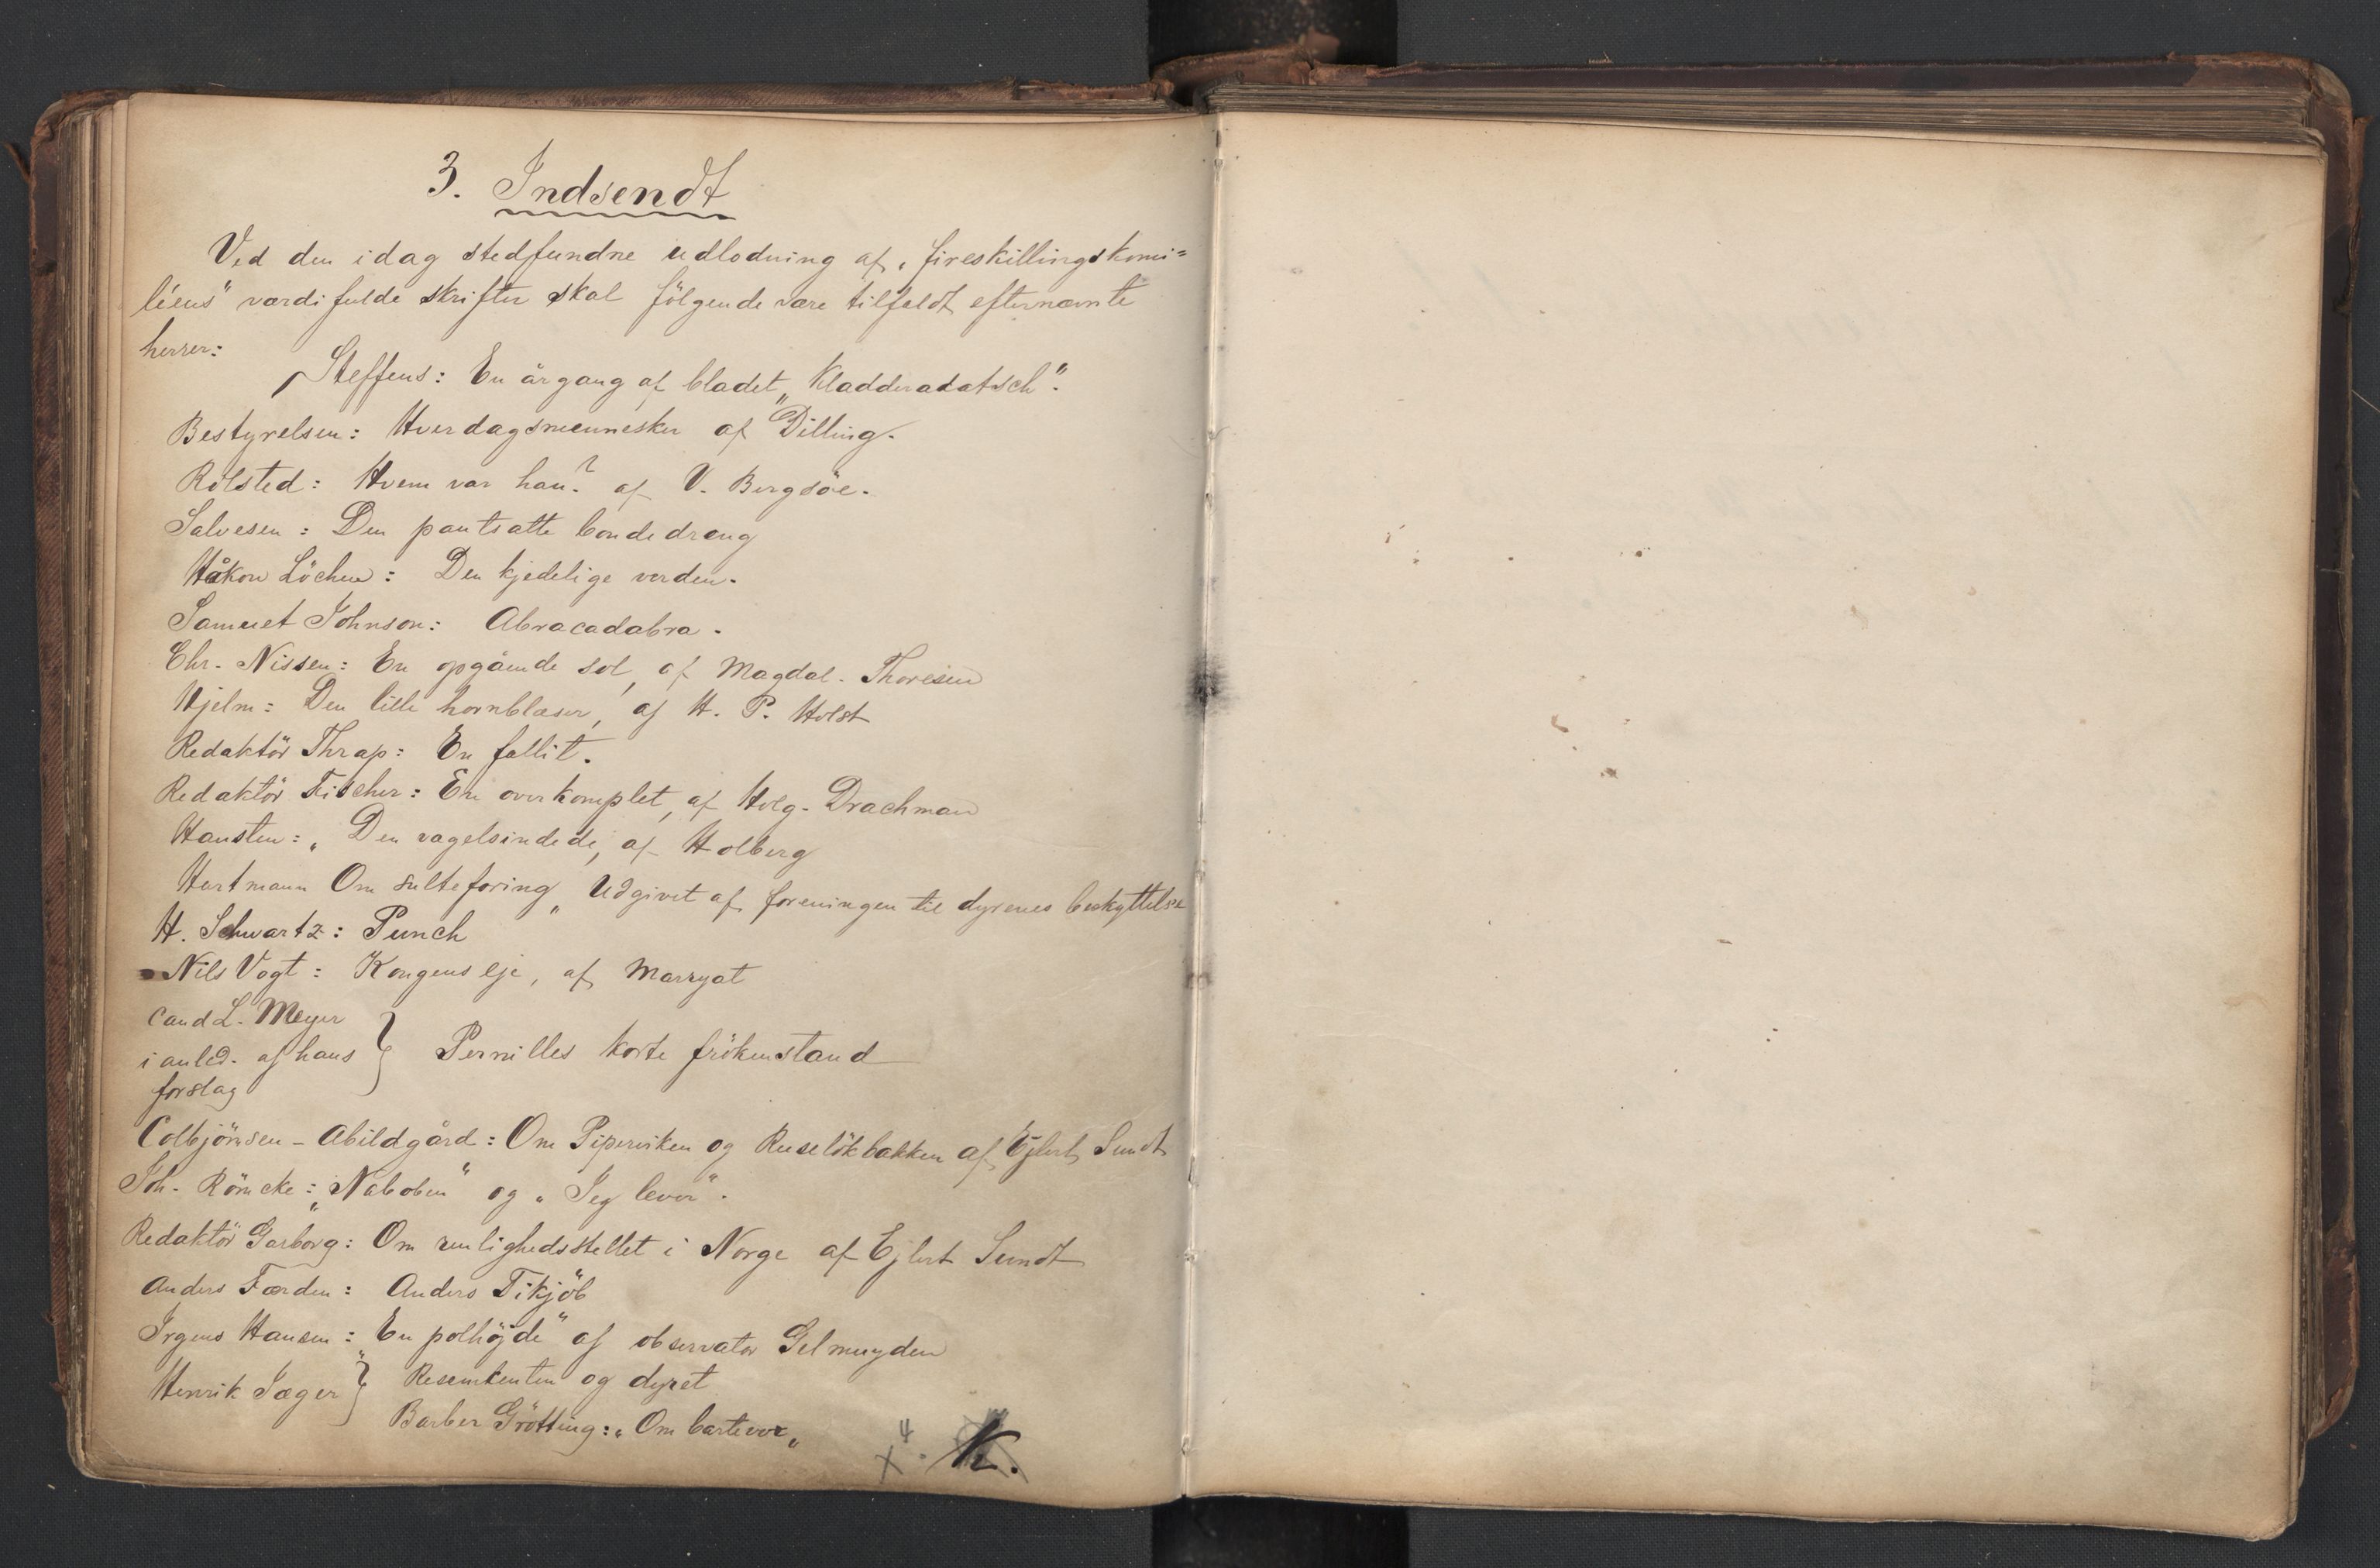 3. Indsendt
Ved den idag stedfundne udlodning af „fireskillingskomi=
léens" værdifulde skrifter skal følgende være tilfaldt efternævnte
herrer:
Steffens: En årgang af bladet „Kladderadatsch".
Bestyrelsen: Hverdagsmennesker af Dilling.
Rolsted: Hvem var han? af V. Bergsöe.
Salvesen: Den pantsatte bondedreng
Håkon Löchen: Den kjedelige verden.
Samuel Johnson: Abracadabra.
Chr. Nissen: En opgående sol, af Magdal. Thoresen
Hjelm: Den lille hornblæser, af H. P. Holst
Redaktör Thrap: En fallit.
Redaktör Fischer: En overkomplet, af Holg. Drachman
Hansten: „Den vagelsindede, af Holberg
Hartmann Om sulteforing „ Udgivet af foreningen til dyrenes beskyttelse
H. Schwartz: Punch
Nils Vogt: Kongens eje, af Marryat
Cand L. Meyer
i anled. af hans } Pernilles korte frökenstand
forslag
Colbjörnsen - Abildgård: Om Piperviken og Ruselökbakken af Ejlert Sundt
Joh. Römcke: „Naboben" og „Jeg lever".
Redaktör Garborg: Om renlighedsstellet i Norge af Ejlert Sundt
Anders Færden: Anders Tikjöb
Irgens Hansen: „En polhöjde" af observator Gelmuyden
Henrik Jæger } Resenkenten og dyret
Barber Grötting: „Om bartevox„
x 4. K.